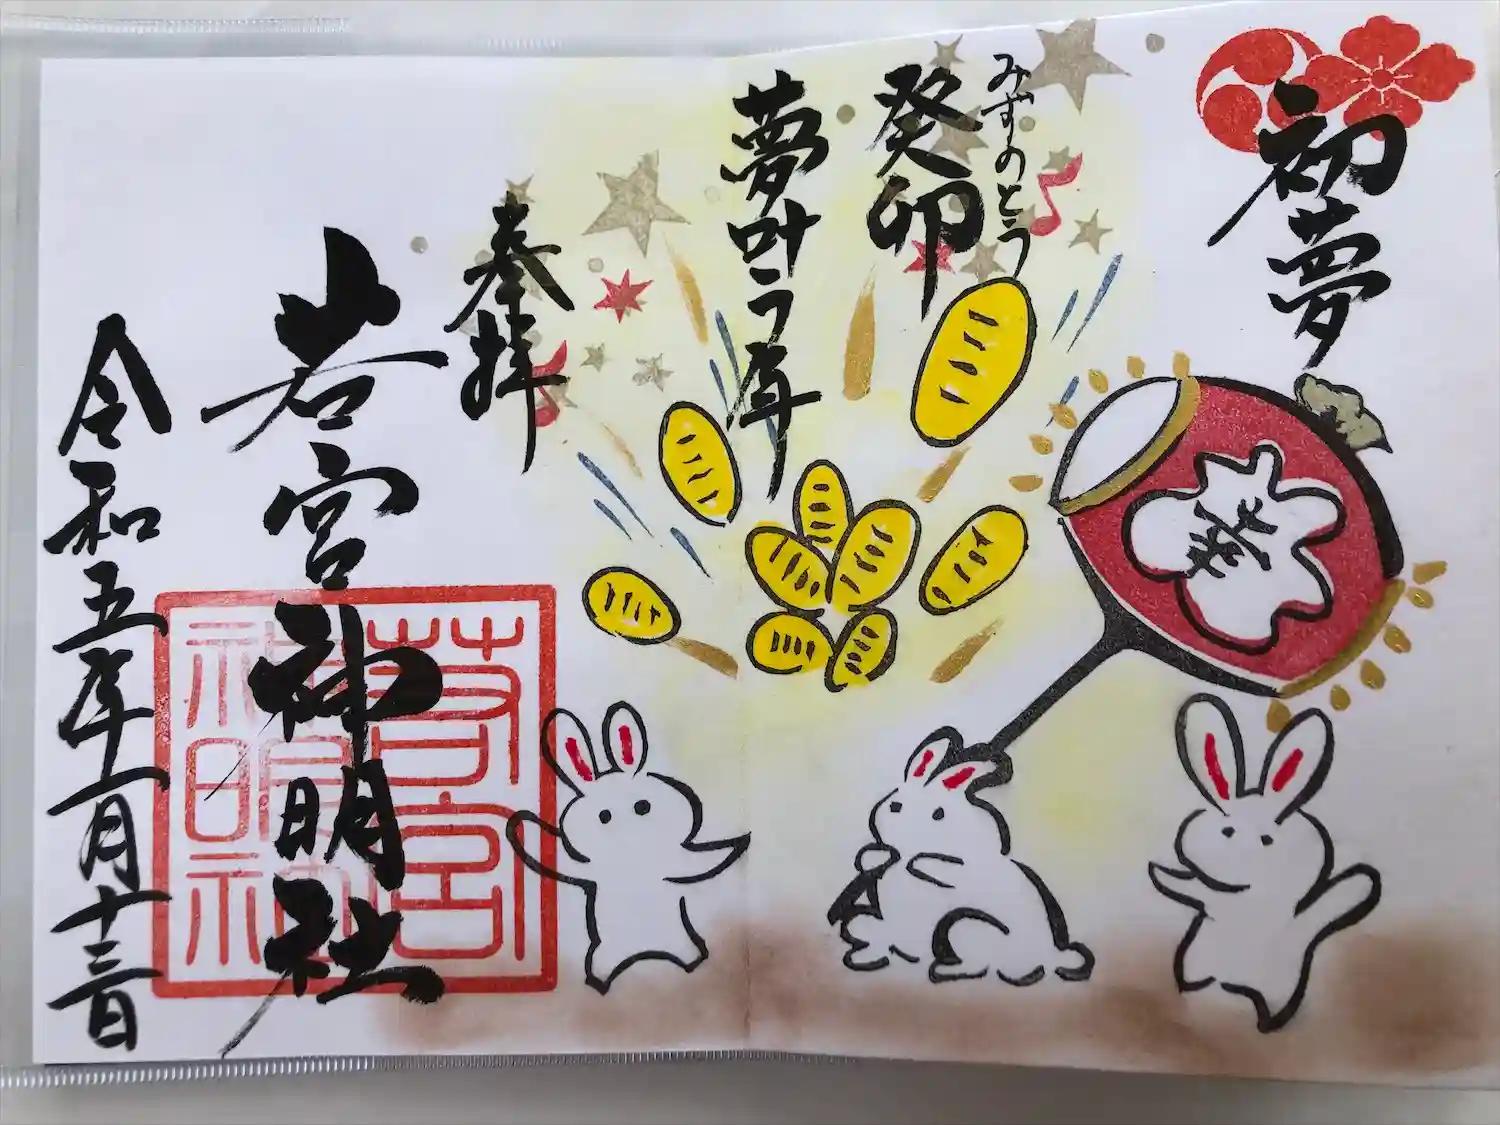 初夢
みずのとう
癸卯
夢叶う年
奉拝
若宮神明社
若宮
神明社
令和五年一月十三日